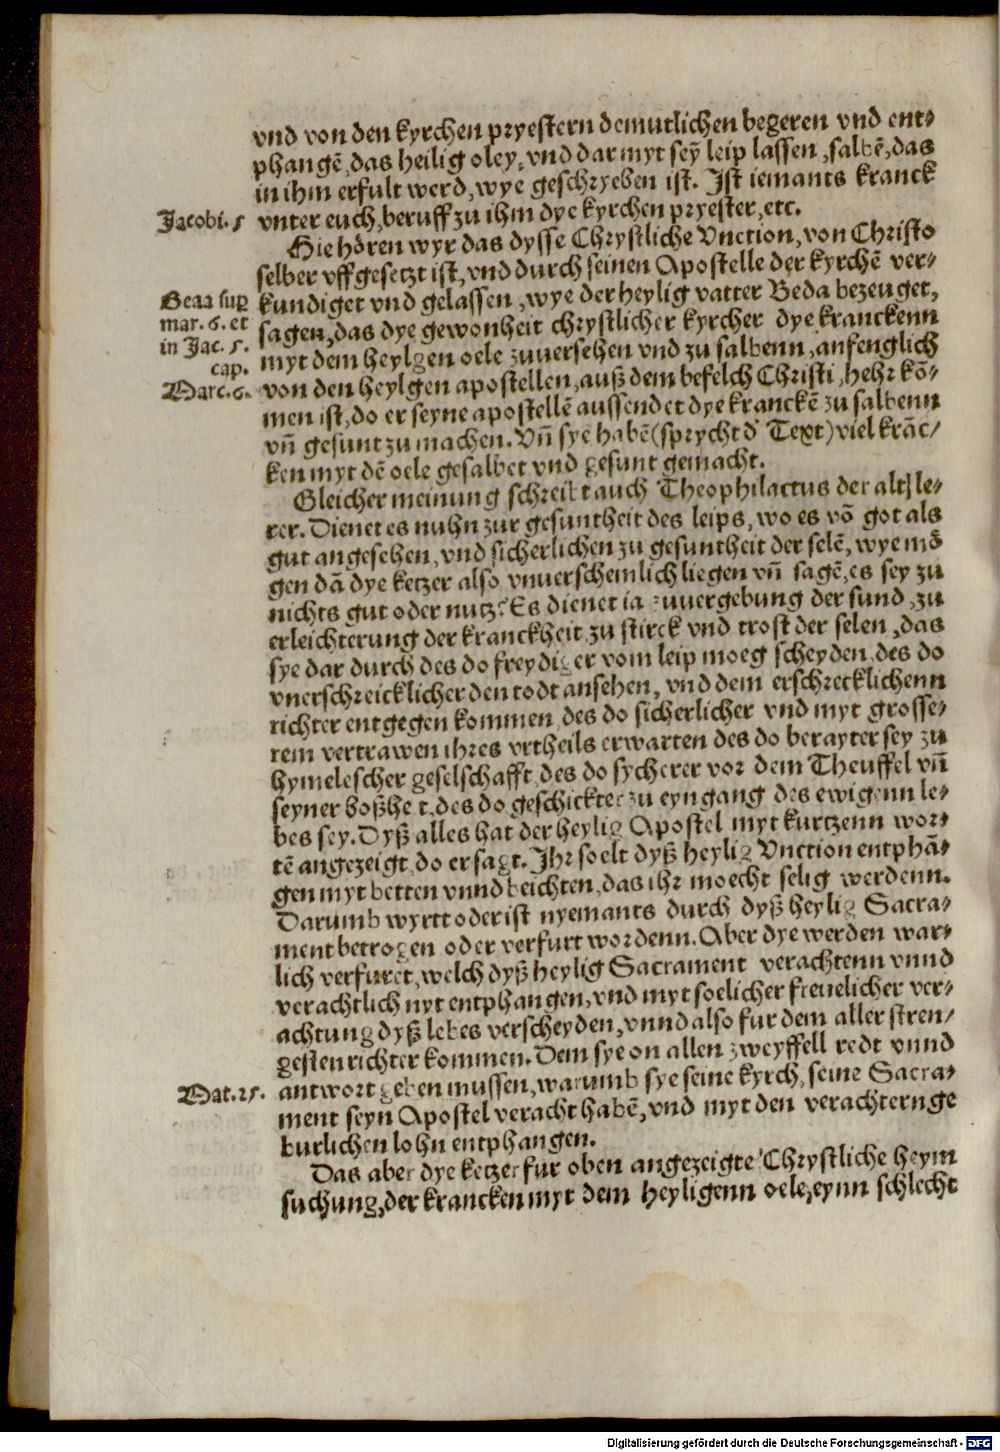 vnd von den kyrchen pryestern demutlichen begeren vnd ent⸗
phangē, das heilig oley, vnd dar myt seȳ leip lassen, salbē, das
in ihm erfult werd, wye geschryeben ist. Ist iemants kranck
Jacobi. 5
vnter euch, beruff zu ihm dye kyrchen pryester, etc.
Hie hören wyr das dysse Chrystliche Vnction, von Christo
selber vffgesetzt ist, vnd durch seinen Apostelle der kyrchē ver⸗
Beda sup
mar. 6. et
in Jac. 5.
cap.
Marc. 6.
kundiget vnd gelassen, wye der heylig vatter Beda bezeuget,
sagen, das dye gewonheit chrystlicher kyrcher dye kranckenn
myt dem heylgen oele zuuersehen vnd zu salbenn, anfenglich
von den heylgen apostellen, auß dem befelch Christi, hehr kō⸗
men ist, do er seyne apostellē aussendet dye kranckē zu salbenn
vn̄ gesunt zu machen. Vn̄ sye habē (sprycht d' Text) viel krāc⸗
ken myt dē oele gesalbet vnd gesunt gemacht.
Gleicher meinung schreibt auch Theophilactus der alt le⸗
rer. Dienet es nuhn zur gesuntheit des leips, wo es vō got als
gut angesehen, vnd sicherlichen zu gesuntheit der selē, wye mö
gen dā dye ketzer also vnuerschemlich liegen vn̄ sagē, es sey zu
nichts gut oder nutz? Es dienet ia zuuergebung der sund, zu
erleichterung der kranckheit, zu stirck vnd trost der selen, das
sye dar durch des do freydiger vom leip moeg scheyden, des do
vnerschreicklicher den todt ansehen, vnd dem erschrecklichenn
richter entgegen kommen, des do sicherlicher vnd myt grosse⸗
rem vertrawen ihres vrtheils erwarten des do berayter sey zu
hymelescher geselschafft, des do sycherer vor dem Theuffel vn̄
seyner boßheit, des do geschickter zu eyngang des ewigenn le⸗
bes sey. Dyß alles hat der heylig Apostel myt kurtzenn wor⸗
tē angezeigt, do er sagt. Ihr soelt dyß heylig Vnction entphā⸗
gen myt betten vnnd beichten, das ihr moecht selig werdenn.
Darumb wyrtt oder ist nyemants durch dyß heylig Sacra⸗
ment betrogen oder verfurt wordenn. Aber dye werden war⸗
lich verfuret, welch dyß heylig Sacrament verachtenn vnnd
verachtlich nyt entphangen, vnd myt soelicher freuelicher ver⸗
achtung dyß lebes verscheyden, vnnd also fur dem aller stren⸗
gesten richter kommen. Dem sye on allen zweyffell redt vnnd
Mat. 25.
antwort geben mussen, warumb sye seine kyrch, seine Sacra⸗
ment seyn Apostel veracht habē, vnd myt den verachtern ge
burlichen lohn entphangen.
Das aber dye ketzer fur oben angezeigte Chrystliche heym
suchung, der krancken myt dem heyligenn oele, eynn schlecht
Digitalisierung gefördert durch die Deutsche Forschungsgemeinschaft - DFG